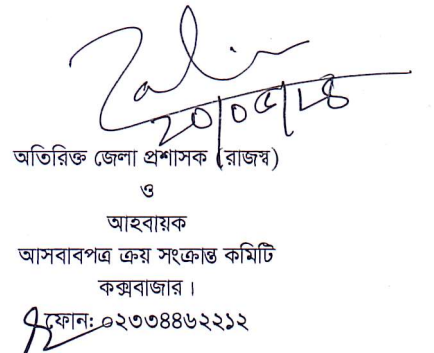 অতিরিক্ত জেলা প্রশাসক (রাজস্ব)
ও
আহবায়ক
আসবাবপত্র ক্রয় সংক্রান্ত কমিটি
কক্সবাজার।
ফোন: ০২৩৩৪৪৬২২১২